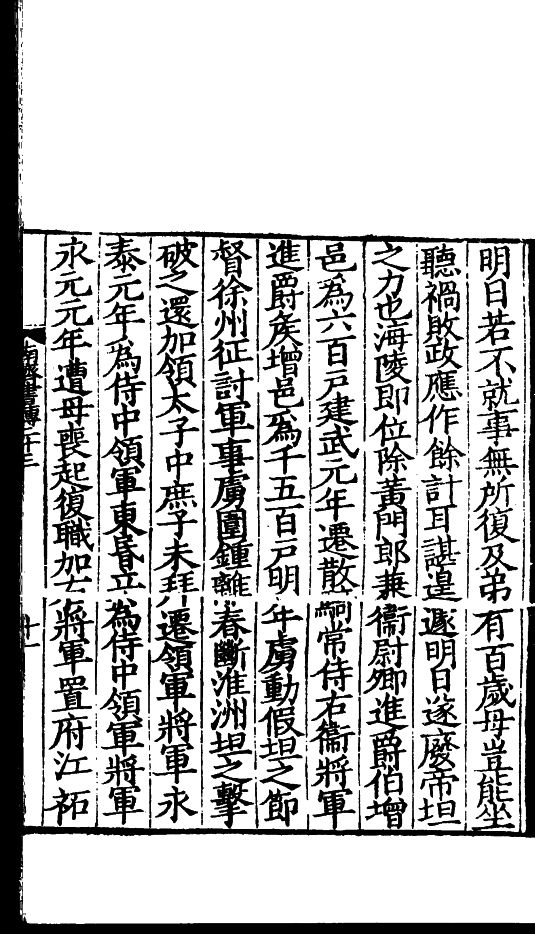 明日若不就事無所復及弟有百歲母豈能坐
聽禍敗政應作餘計耳諶遑遽明日遂廢帝坦
之力也海陵即位除黃門郎兼衞尉卿進爵伯增
邑爲六百戸建武元年遷散騎常侍右衞將軍
進爵矦增邑爲千五百戸明年虜動假坦之節
督徐州征討軍事虜圍鍾離春斷淮洲坦之擊
破之還加領太子中庶子未拜遷領軍將軍永
泰元年爲侍中領軍東昏立爲侍中領軍將軍
永元元年遭母喪起復職加右將軍置府江祏
南齊書傳二十三
十一